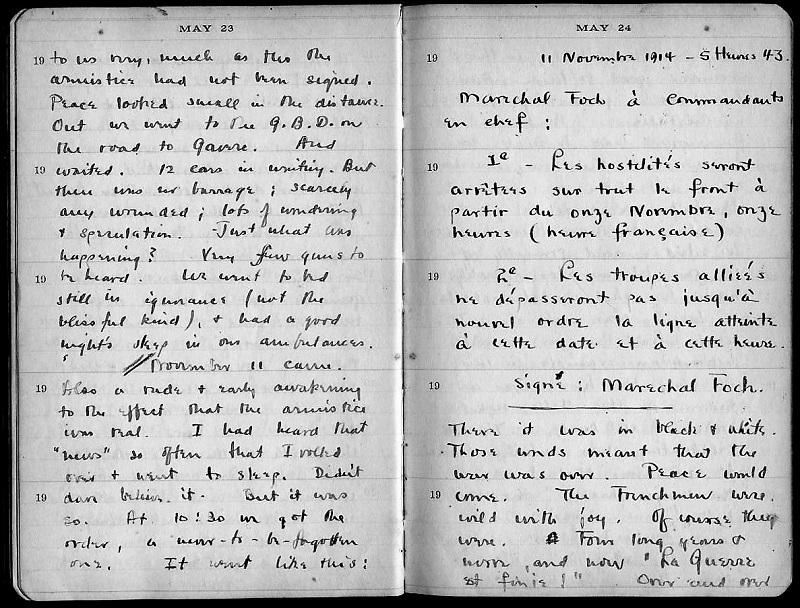 MAY 23
19 to us very, much as tho the
armistice had not been signed.
Peace looked small in the distance.
Out we went to the G.B.D. on
the road to Gavere. And
19 waited. 12 cars in waiting. But
there was no barrage; scarcely
any wounded; lots of wondering
& speculation. Just what was
happening? Very few guns to
19 be heard. We went to bed
still in ignorance (not the
blissful kind), & had a good
night's sleep in our ambulances.
November 11 came.
19 Also a rude & early awakening
to the effect that the armistice
was real. I had heard that
"news" so often that I rolled
over & went to sleep. Didn't
19 dare believe it. But it was
so. At 10:30 we got the
order, a never-to-be-forgotten
one. It went like this:
MAY 24
19 11 Novembre 1914 - 5 Heures 43.
Marechal Foch à Commandants
en chef:
19 1e - Les hostilités seront
arrêtées sur tout le front à
partir du onze Novembre, onze
heures (heure française)
19 2e - Les troupes alliées
ne dépasseront pas jusqu'à
nouvel ordre la ligne atteinte
à cette date et à cette heure.
19 Signé: Marechal Foch.
There it was in black & white.
Those words meant that the
war was over. Peace would
19 come. The Frenchmen were
wild with joy. Of course they
were. Four long years &
more, and now "La Guerre
est finie!" Over and over